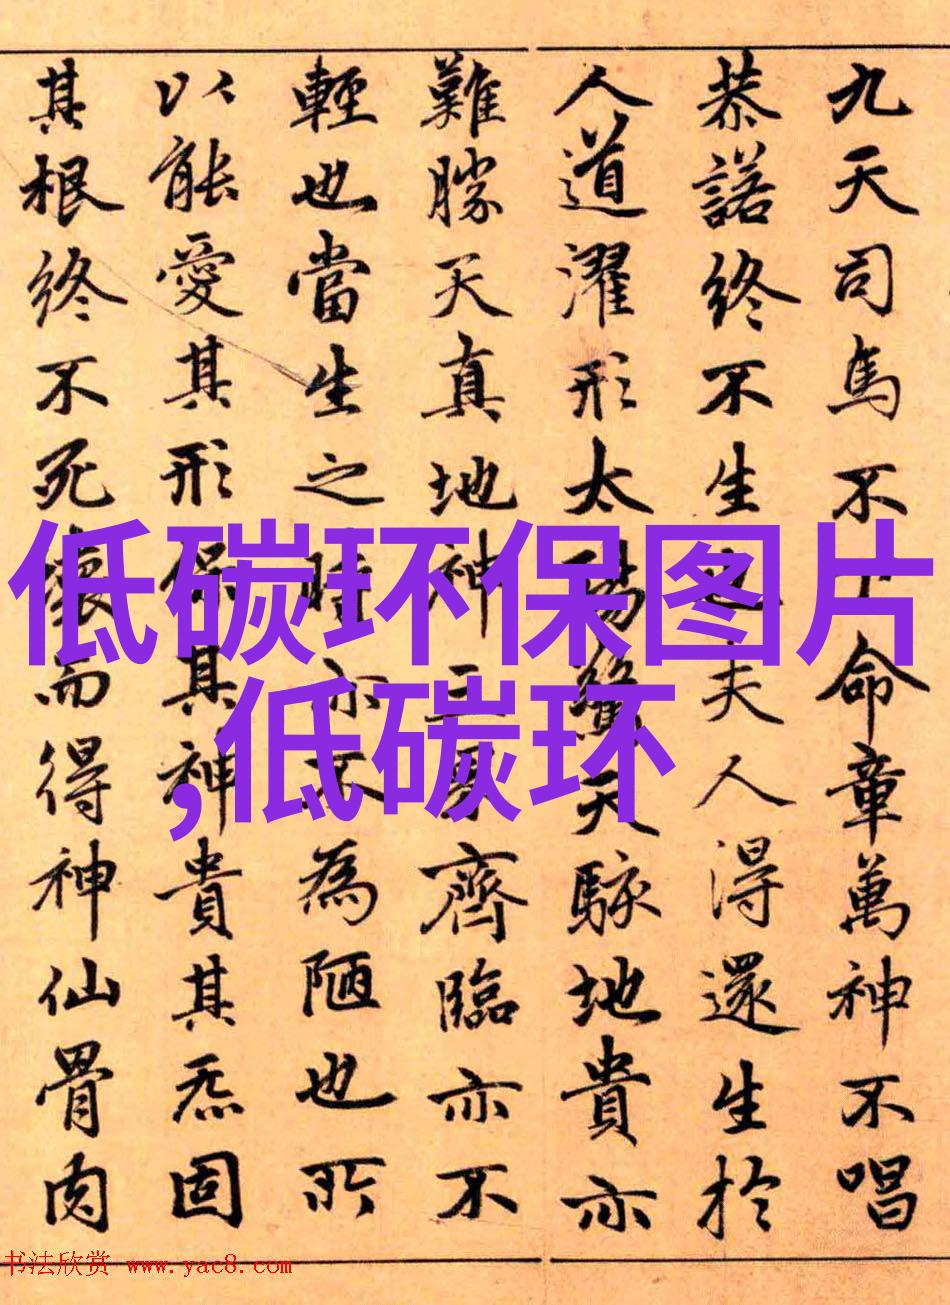 九天司馬不下命章萬神不唱
恭諾終不生夫人得還生於
人道濯形太陽驚天駭地貴亦
難勝天真地神三界齊臨亦不
輕也當生之時亦不為陋也所
以能愛其形保其神貴其炁固
其根終不死壞而得神仙骨肉
低碳环保图片
,低碳环
书法欣赏 www.yac8.com